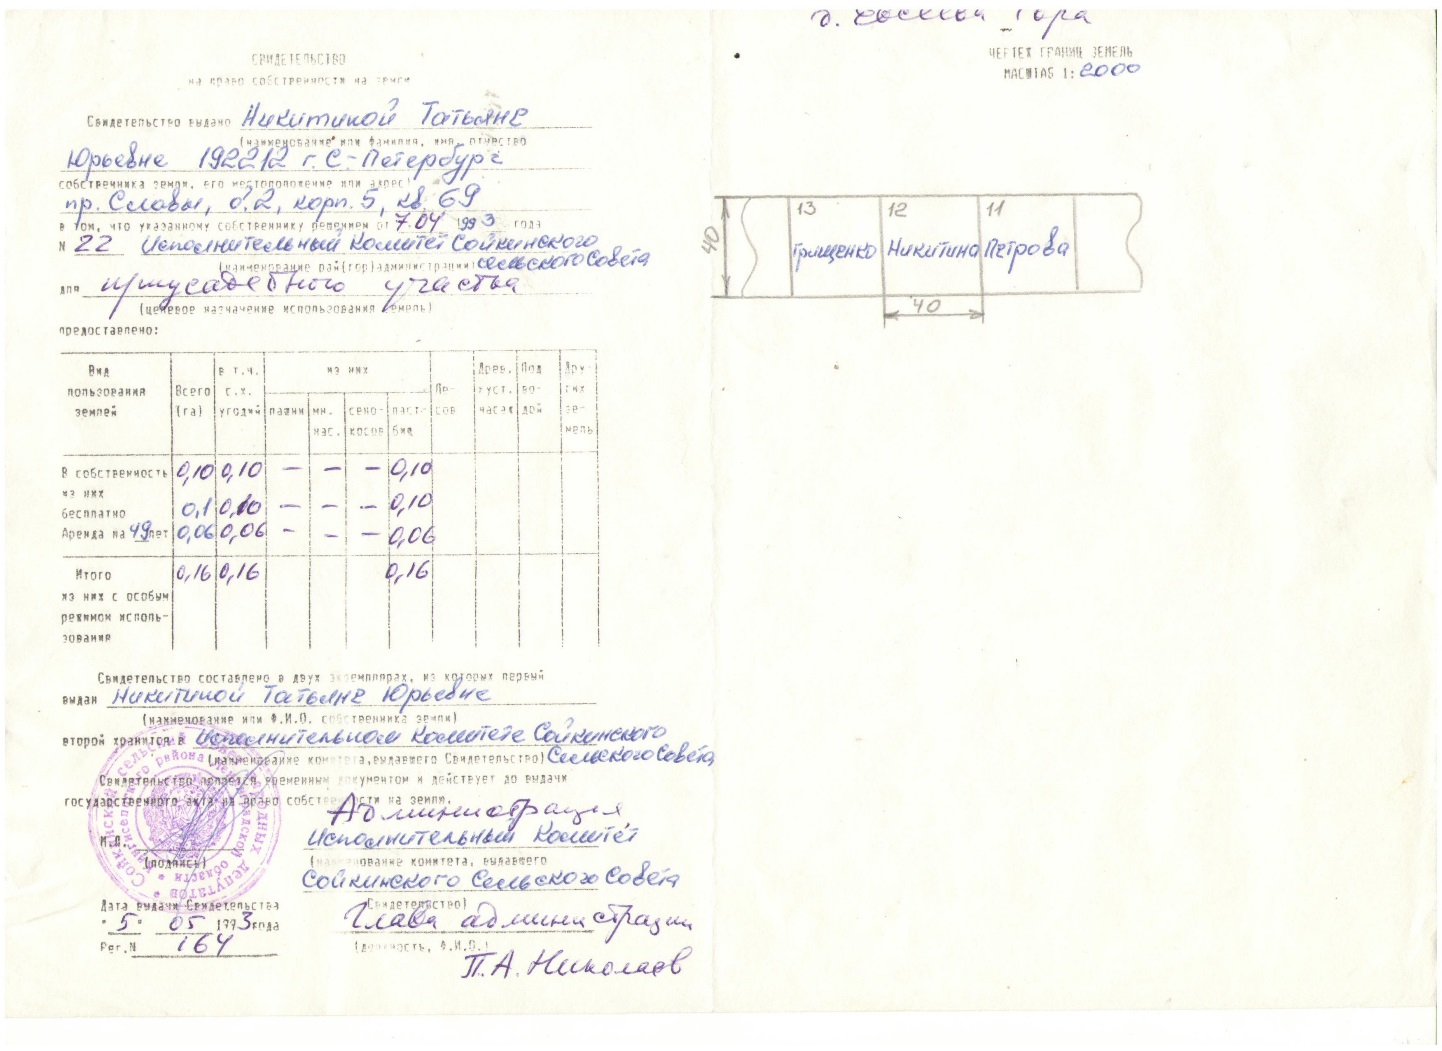 СВИДЕТЕЛЬСТВО
на право собственности на земли
Свидетельство выдано Никитиной Татьяне
(наименование или фамилия, имя, отчество
Юрьевне 192212 г. С-Петербург
собственника земли, его местоположение или адрес)
пр. Славы, д.2, корп. 5, кв. 69
в том, что указанному собственнику решением от 7.04 1993 года
N 22 Исполнительный Комитет Сойкинского
(наименование рай(гор)администрации) сельского Совета
для приусадебного участка
(целевое назначение использования земель)
предоставлено:
Вид пользования землей
Всего (га)
в т.ч. с.х. угодий
из них
пашни
мн. нас.
сено-косов
паст-бищ
Ле-сов
Древ. куст. часах
Под во-дой
Дру-гих зе-мель
В собственность 0,10 0,10 – – – 0,10
из них
бесплатно 0,1 0,10 – – – 0,10
Аренда на 49 лет 0,06 0,06 – – – 0,06
Итого 0,16 0,16 0,16
из них с особым
режимом исполь-
зования
Свидетельство составлено в двух экземплярах, из которых первый
выдан Никитиной Татьяне Юрьевне
(наименование или Ф.И.О. собственника земли)
второй хранится в Исполнительном Комитете Сойкинского
(наименование комитета, выдавшего Свидетельство) Сельского Совета
Свидетельство является временным документом и действует до выдачи
государственного акта на право собственности на землю.
Администрация
М.П. Исполнительный Комитет
(подпись) (наименование комитета, выдавшего
Сойкинского Сельского Совета
Дата выдачи Свидетельства Свидетельство)
" 5 " 05 1993 года Глава администрации
Рег.N 164 (должность, Ф.И.О.)
П.А. Николаев
Гора
ЧЕРТЕЖ ГРАНИЦ ЗЕМЕЛЬ
МАСШТАБ 1: 2000
13 12 11
40 Грищенко Никитина Петрова
40